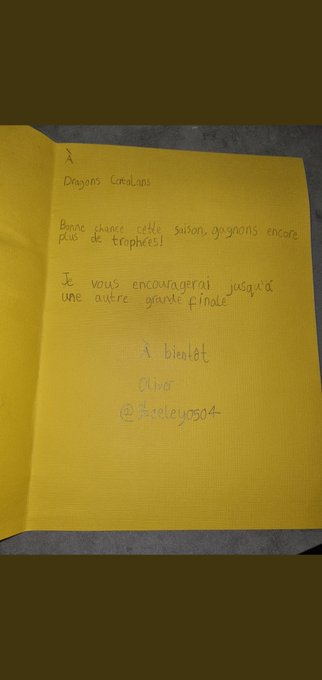 À
Dragons Catalans
Bonne chance cette saison, gagnons encore
plus de trophées!
Je vous encouragerai jusqu'á
une autre grande finale
À bientôt
Oliver